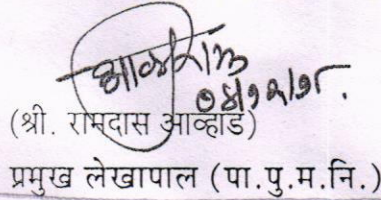 (श्री. रामदास आव्हाड)
प्रमुख लेखापाल (पा.पु.म.नि.)